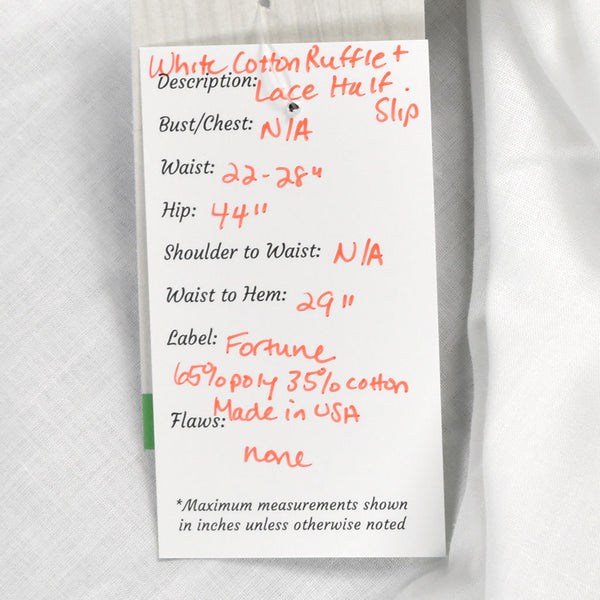 White Cotton Ruffle +
Description: Lace Half.
Slip
Bust/Chest: N/A
Waist: 22-28"
Hip: 44"
Shoulder to Waist: N/A
Waist to Hem: 29"
Label: Fortune
65% poly 35% cotton
Made in USA
Flaws:
none
*Maximum measurements shown
in inches unless otherwise noted